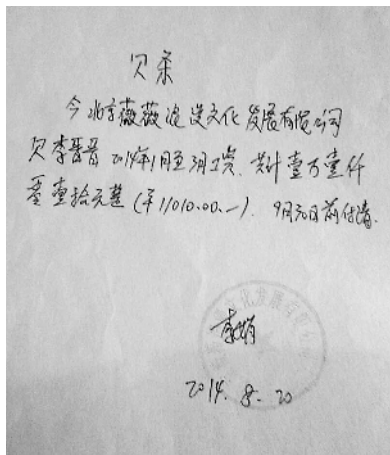 欠条
今北京薇薇浪漫文化发展有限公司
欠李晋晋2014年1月至3月工资.共计壹万壹仟
零壹拾元整(¥11010.00.—).9月30日前付清.
李娟
2014.8.20